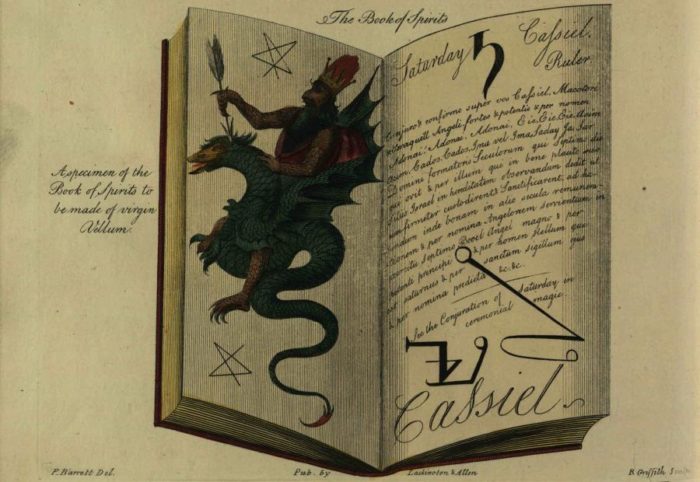 The Book of Spirits
A specimen of the
Book of Spirits to
be made of virgin
Vellum.
Saturday
Cassiel.
Ruler
Conjuro & confirmo super vos Cassiel, Machatori
Angeli fortes & potentis & per nomen
Adonai, Adonai, Adonai, Eie, Eie, Eie,
Cados, Cados, Ima vel Ima Saday Ja, Sar,
Domini formatoris Seculorum qui Septimo die
& per illum qui in bene placito suo
filiis Israel in hereditatem observandum dedit ut
custodirent & Sanctificarent, ad
inde bonam in alio secula
& per nomina Angelorum servientium in
septimo Booel Angel magno & per
potenti principe & per nomen Stellum que
est saturnus & per sanctam sigillum que
& per nomina predicta &c. &c.
See the Conjuration of Saturday in
ceremonial magic.
Cassiel.
F. Barrett Del.
Pub. by
Lackington & Allen
R Griffith